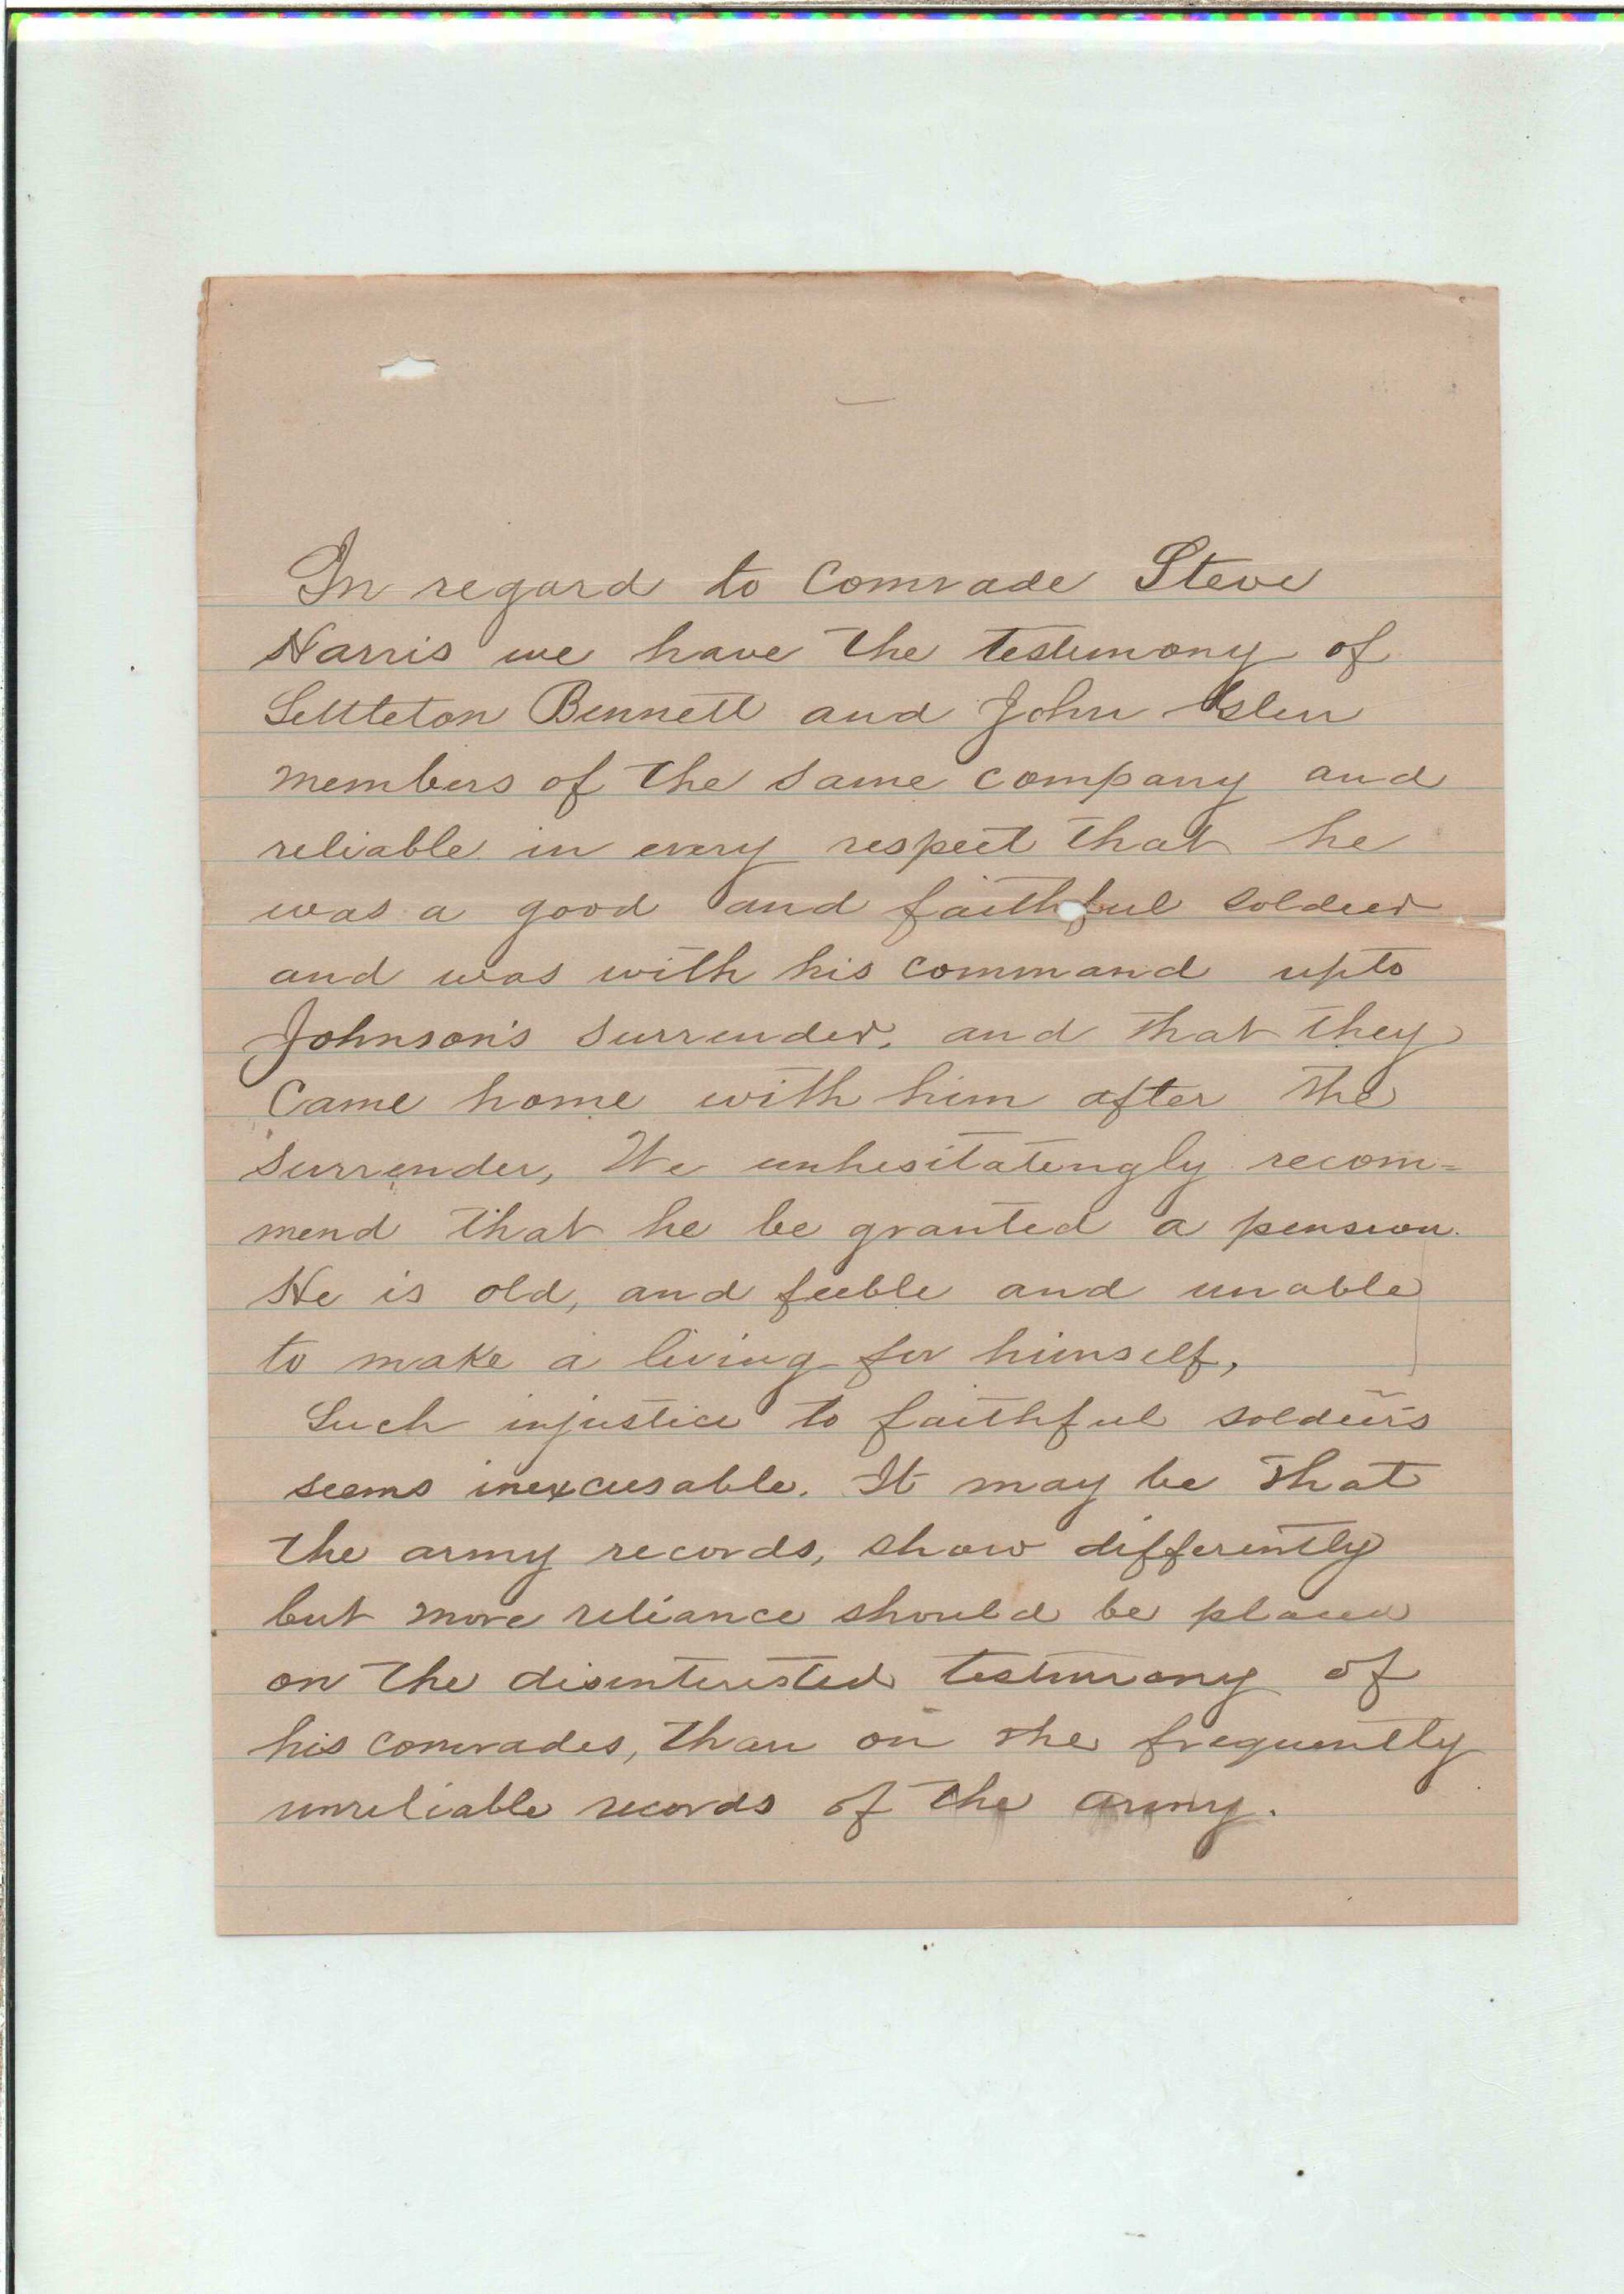 In regard to Comrade Steve
Harris we have the testimony of
Littleton Bennett and John
members of the same company and
reliable in every respect that he
was a good and faithful soldier
and was with his command upto
Johnson's surrender, and that they
Came home with him after the
surrender, We unhesitatingly recom=
mend that he be granted a pension.
He is old, and feeble and unable
to make a living for himself,
Such injustice to faithful soldiers
seems inexcusable. It may be that
the army records, show differently
but more reliance should be placed
on the disinterested testimony of
his comrades, than on the frequently
unreliable records of the army.